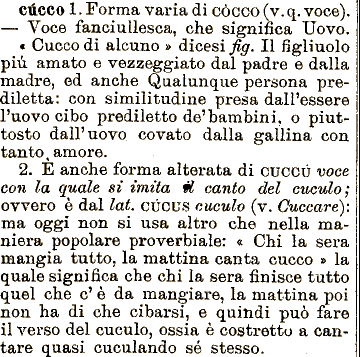 cúcco 1. Forma varia di CÒCCO (v. q. voce).
— Voce fanciullesca, che significa Uovo.
« Cucco di alcuno » dicesi fig. Il figliuolo
più amato e vezzeggiato dal padre e dalla
madre, ed anche Qualunque persona pre-
diletta: con similitudine presa dall'essere
l'uovo cibo prediletto de'bambini, o piut-
tosto dall'uovo covato dalla gallina con
tanto amore.
2. È anche forma alterata di CUCCÚ voce
con la quale si imita il canto del cuculo;
ovvero è dal lat. CÚCUS cuculo (v. Cuccare):
ma oggi non si usa altro che nella ma-
niera popolare proverbiale: « Chi la sera
mangia tutto, la mattina canta cucco » la
quale significa che chi la sera finisce tutto
quel che c'è da mangiare, la mattina poi
non ha di che cibarsi, e quindi può fare
il verso del cuculo, ossia è costretto a can-
tare quasi cuculando sé stesso.